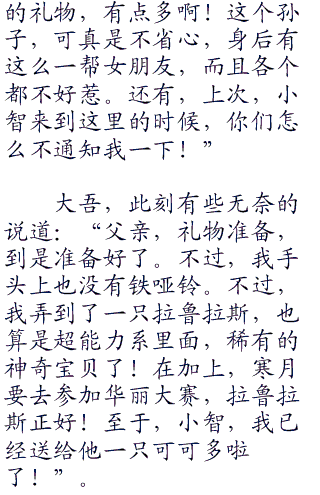 的礼物，有点多啊！这个孙
子，可真是不省心，身后有
这么一帮女朋友，而且各个
都不好惹。还有，上次，小
智来到这里的时候，你们怎
么不通知我一下！”
大吾，此刻有些无奈的
说道：“父亲，礼物准备，
到是准备好了。不过，我手
头上也没有铁哑铃。不过，
我弄到了一只拉鲁拉斯，也
算是超能力系里面，稀有的
神奇宝贝了！在加上，寒月
要去参加华丽大赛，拉鲁拉
斯正好！至于，小智，我已
经送给他一只可可多啦
了！”。